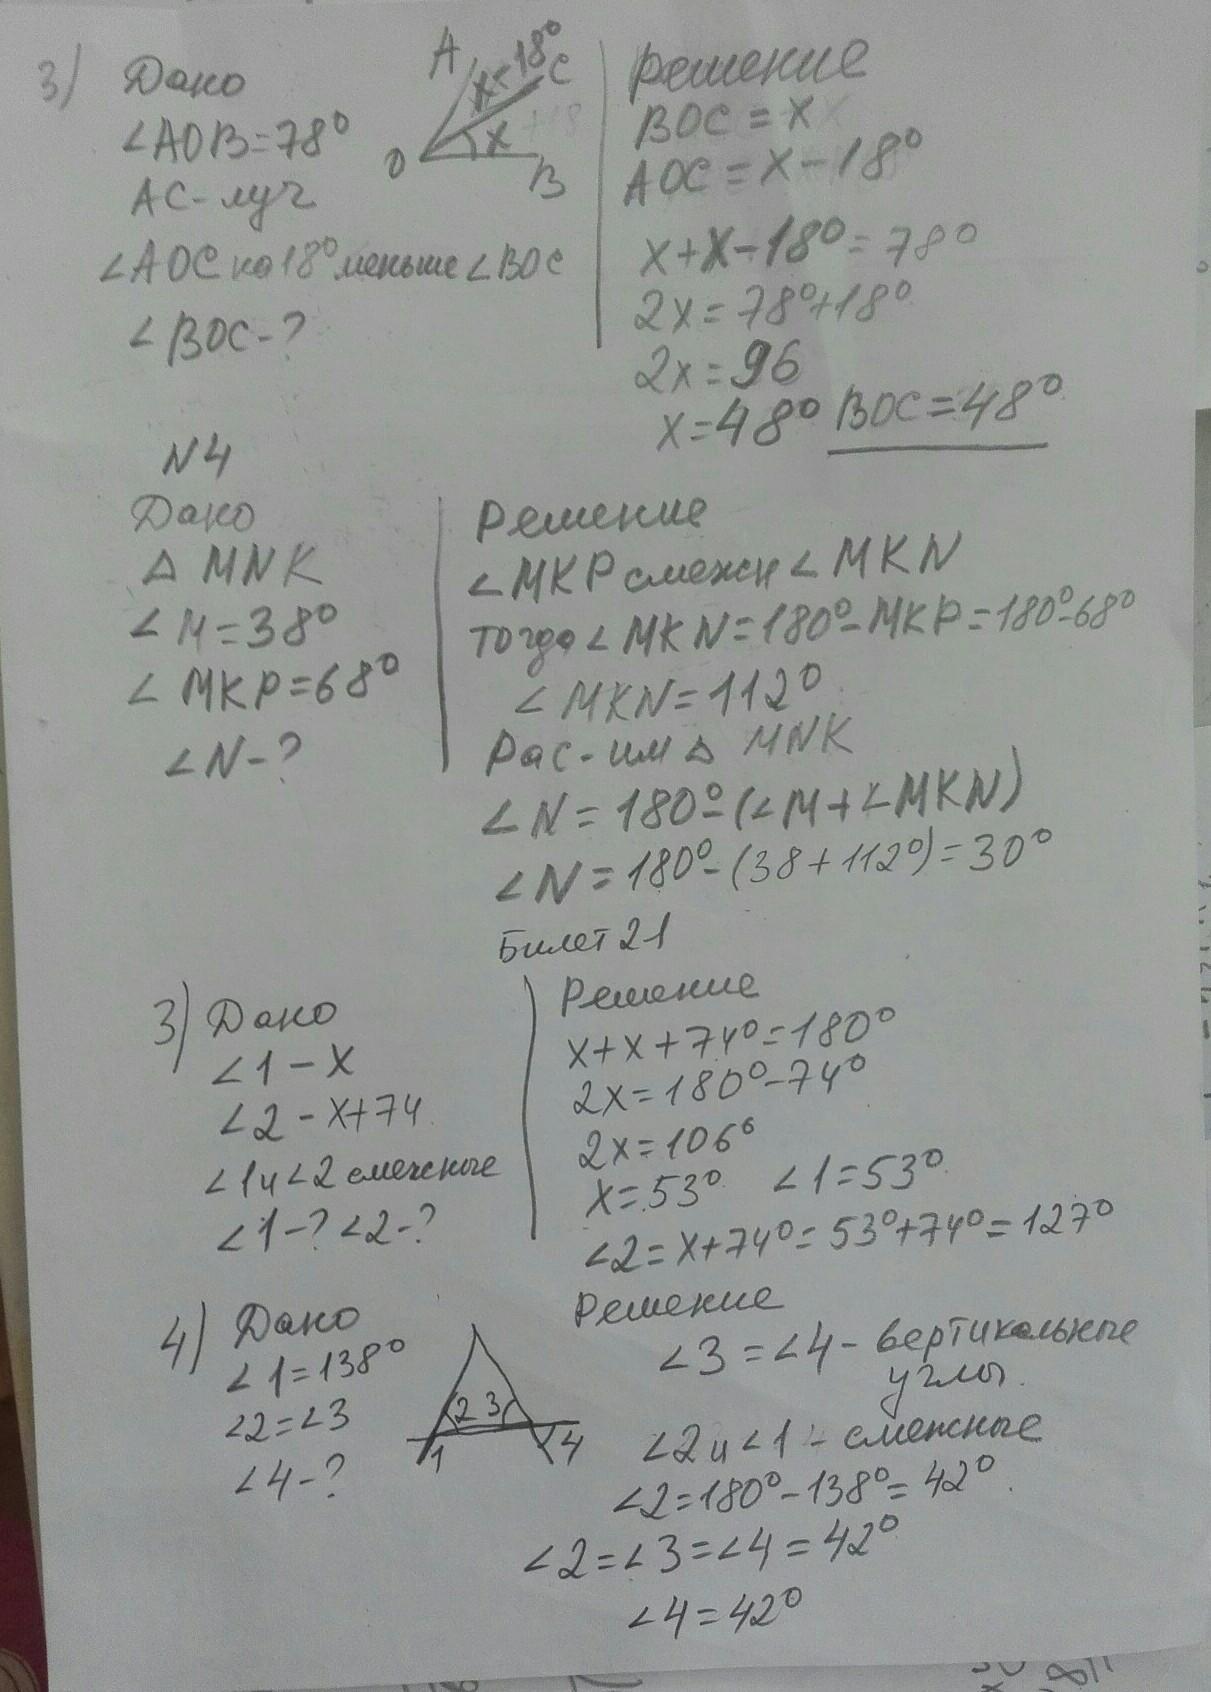 3) Дано
∠AOB=78°
AC-луч
∠AOC на 18° меньше ∠BOC
∠BOC-?
A
x-18°
C
x
O
B
Решение
BOC = x
AOC = x-18°
x+x-18°=78°
2x=78°+18°
2x=96
x=48° BOC=48°
N4
Дано
△ MNK
∠M=38°
∠MKP=68°
∠N-?
Решение
∠MKP смежн ∠MKN
тогда ∠MKN=180°-MKP=180°-68°
∠MKN=112°
Рас-им △ MNK
∠N=180°-(∠M+∠MKN)
∠N=180°-(38+112°)=30°
Билет 21
3) Дано
∠1-x
∠2-x+74
∠1и∠2 смежные
∠1-? ∠2-?
Решение
x+x+74°=180°
2x=180°-74°
2x=106°
x=53° ∠1=53°
∠2=x+74°=53°+74°=127°
4) Дано
∠1=138°
∠2=∠3
∠4-?
2 3
1 4
Решение
∠3=∠4-вертикальные
углы.
∠2и∠1-смежные
∠2=180°-138°=42°
∠2=∠3=∠4=42°
∠4=42°